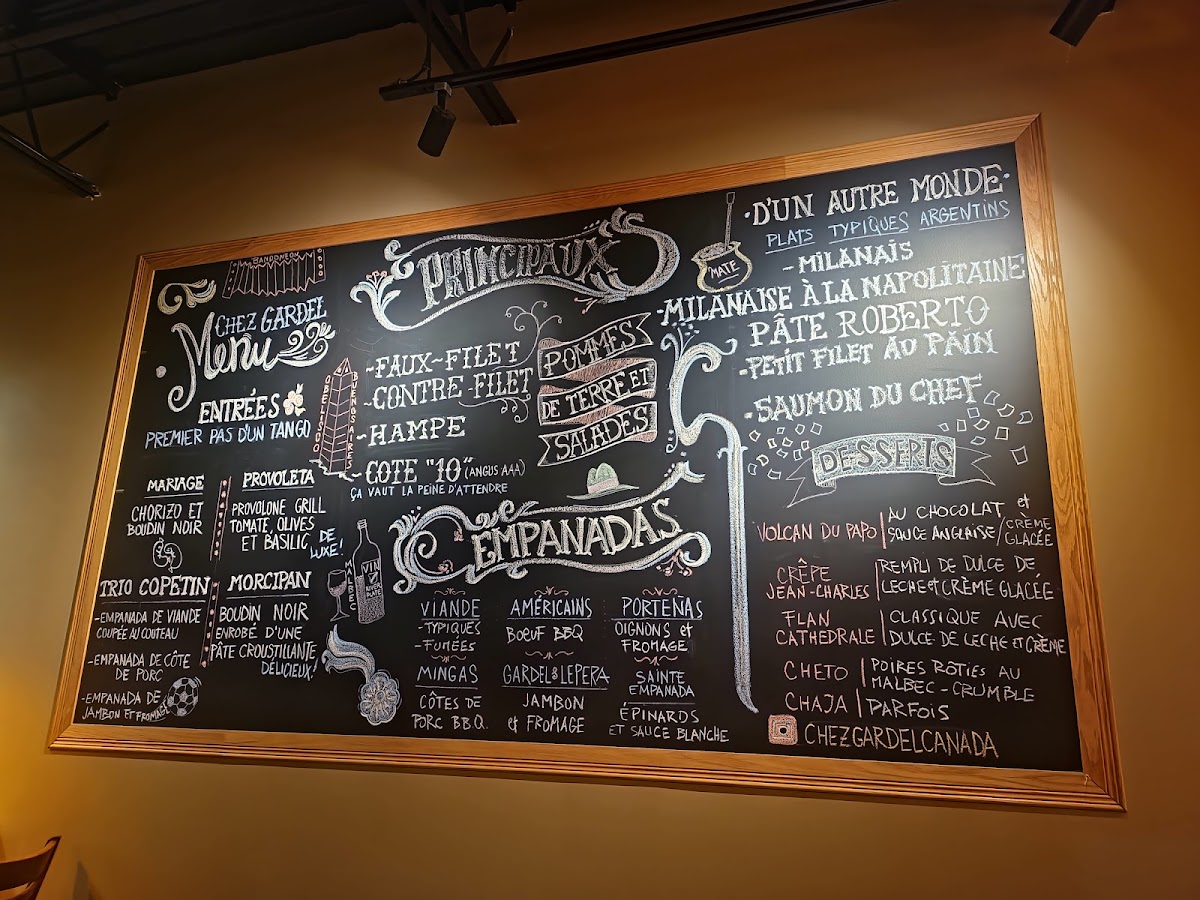 BANDONEON
CHEZ GARDEL
Menu
ENTRÉES
PREMIER PAS D'UN TANGO
OBELISCO
BUENOS AIRES
MARIAGE
CHORIZO ET
BOUDIN NOIR
PROVOLETA
PROVOLONE GRILL
TOMATE, OLIVES
ET BASILIC
DE
LUXE!
TRIO COPETIN
-EMPANADA DE VIANDE
COUPÉE AU COUTEAU
-EMPANADA DE CÔTE
DE PORC
-EMPANADA DE
JAMBON ET FROMAGE
MORCIPAN
BOUDIN NOIR
ENROBÉ D'UNE
PÂTE CROUSTILLANTE
DÉLICIEUX!
PRINCIPAUX
-FAUX-FILET
-CONTRE-FILET
-HAMPE
COTE "10" (ANGUS AAA)
ÇA VAUT LA PEINE D'ATTENDRE
POMMES
DE TERRE ET
SALADES
MALBEC
VIN
EMPANADAS
VIANDE
-TYPIQUES
-FUMÉES
AMÉRICAINS
BOEUF BBQ
PORTEÑAS
OIGNONS et
FROMAGE
MINGAS
CÔTES DE
PORC B.B.Q.
GARDEL & LEPERA
JAMBON
et FROMAGE
SAINTE
EMPANADA
ÉPINARDS
ET SAUCE BLANCHE
MATE
·D'UN AUTRE MONDE·
PLATS TYPIQUES ARGENTINS
-MILANAIS
-MILANAISE À LA NAPOLITAINE
PÂTE ROBERTO
-PETIT FILET AU PAIN
-SAUMON DU CHEF
DESSERTS
VOLCAN DU PAPO | AU CHOCOLAT et
SAUCE ANGLAISE/CRÈME
GLACÉE
CRÊPE
JEAN-CHARLES | REMPLI DE DULCE DE
LECHE et CRÈME GLACÉE
FLAN
CATHEDRALE | CLASSIQUE AVEC
DULCE DE LECHE ET CRÈME
CHETO | POIRES RÔTIES AU
MALBEC-CRUMBLE
CHAJA | PARFOIS
CHEZGARDELCANADA